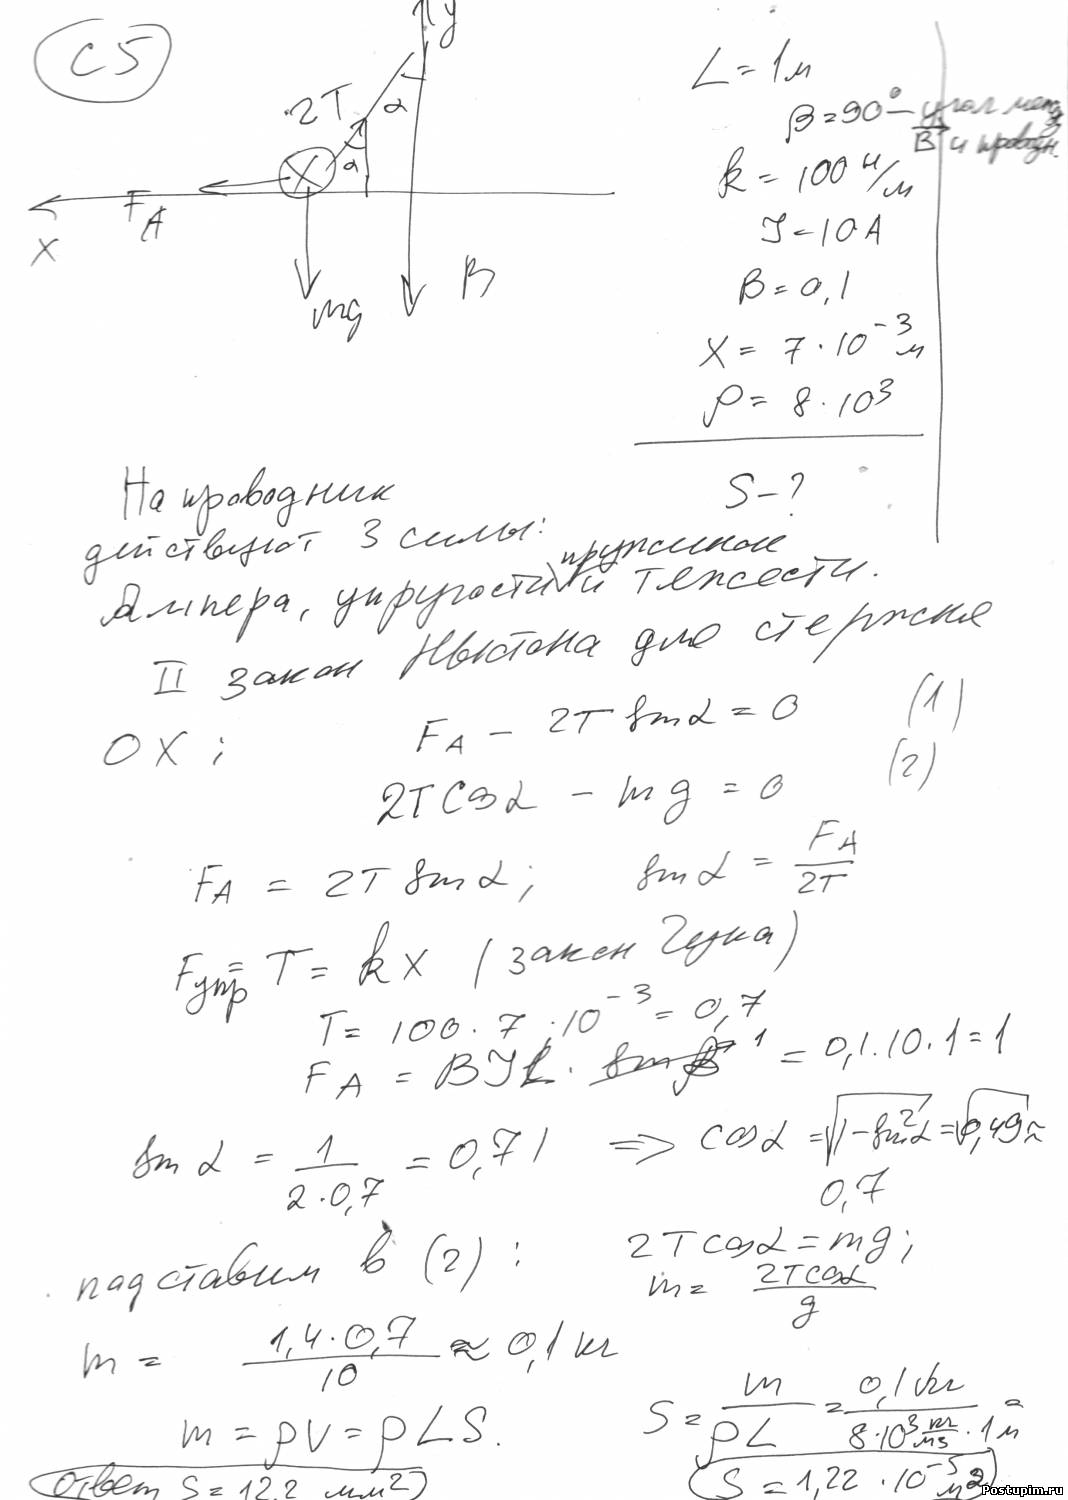 C5
y
2T
α
α
X
F_A
X
mg
B
L = 1м
β = 90° — угол между
B и проводн.
k = 100 н/м
J = 10 А
B = 0,1
X = 7 · 10⁻³ м
ρ = 8 · 10³
S - ?
На проводник
действуют 3 силы:
Ампера, упругости пружинок и тяжести.
II закон Ньютона для стержня
OX ; F_A - 2T sin α = 0 (1)
2T cos α - mg = 0 (2)
F_A = 2T sin α ; sin α = F_A / 2T
F_упр = T = kX (закон Гука)
T = 100 · 7 · 10⁻³ = 0,7
F_A = BJL · sin β 1 = 0,1 · 10 · 1 = 1
sin α = 1 / 2 · 0,7 = 0,71 => cos α = √1 - sin² α = √0,49 ≈
0,7
подставим в (2) : 2T cos α = mg ;
m = 2T cos α / g
m = 1,4 · 0,7 / 10 ≈ 0,1 кг
m = ρV = ρLS.
S = m / ρL = 0,1 кг / 8 · 10³ кг/м3 · 1м =
S = 1,22 · 10⁻⁵ м2
Ответ S = 12,2 мм²
Postupim.ru